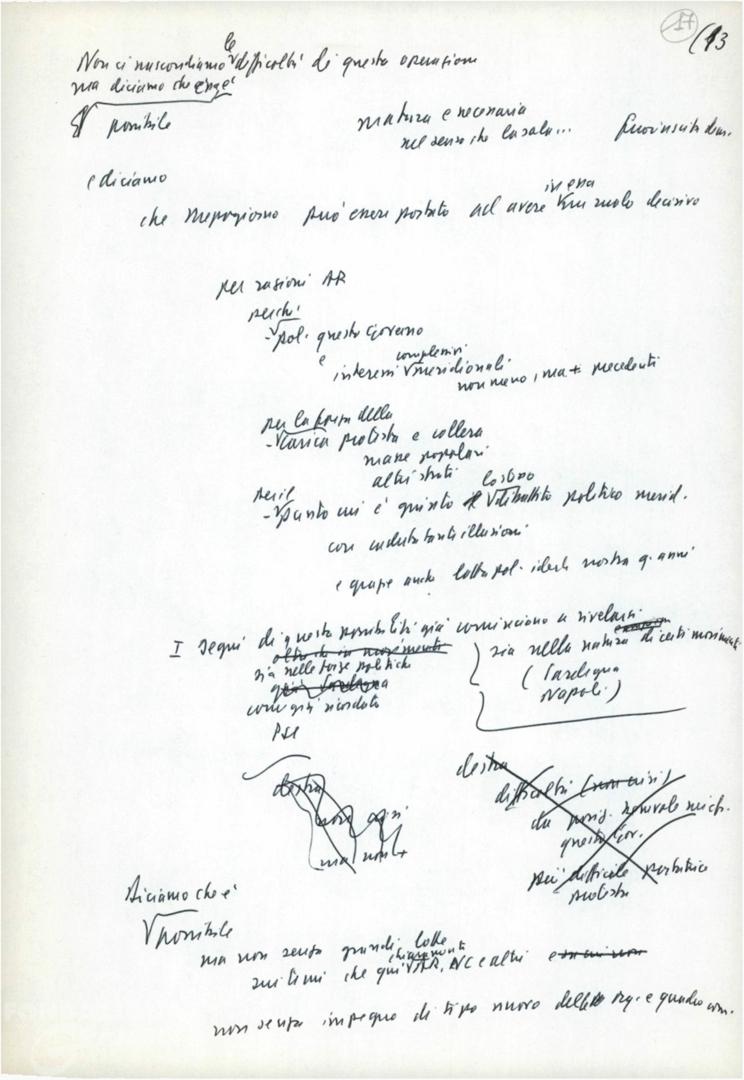 17
(13
le
Non ci nascondiamo difficoltà di questa operazione
ma diciamo che
possibile
matura e necessaria
nel senso che la sola...
e diciamo
in essa
che Mezzogiorno può essere portato ad avere un ruolo decisivo
per ragioni AR
perché
- pol. questo Governo
e
complessivi
interessi meridionali
non meno, ma + precedenti
per la forza della
- carica protesta e collera
masse popolari
altri strati
per il
lo stesso
- punto cui è giunto il dibattito politico merid.
con caduta tante illusioni
e grazie anche lotta pol. ideale nostra q. anni
I segni di questa possibilità già cominciano a rivelarsi
altro in movimento
sia nelle forze politiche
già Sardegna
come già ricordato
PSI
sia nella natura di certi movimenti
(Sardegna
Napoli)
destra
non
ma non +
destra
difficoltà
da posiz.
questo Gov.
più difficile
protesta
Diciamo che è
possibile
ma non senza grandi lotte
sui temi che qui AR, NC e altri e
non senza impegno di tipo nuovo della org. e quadro com.